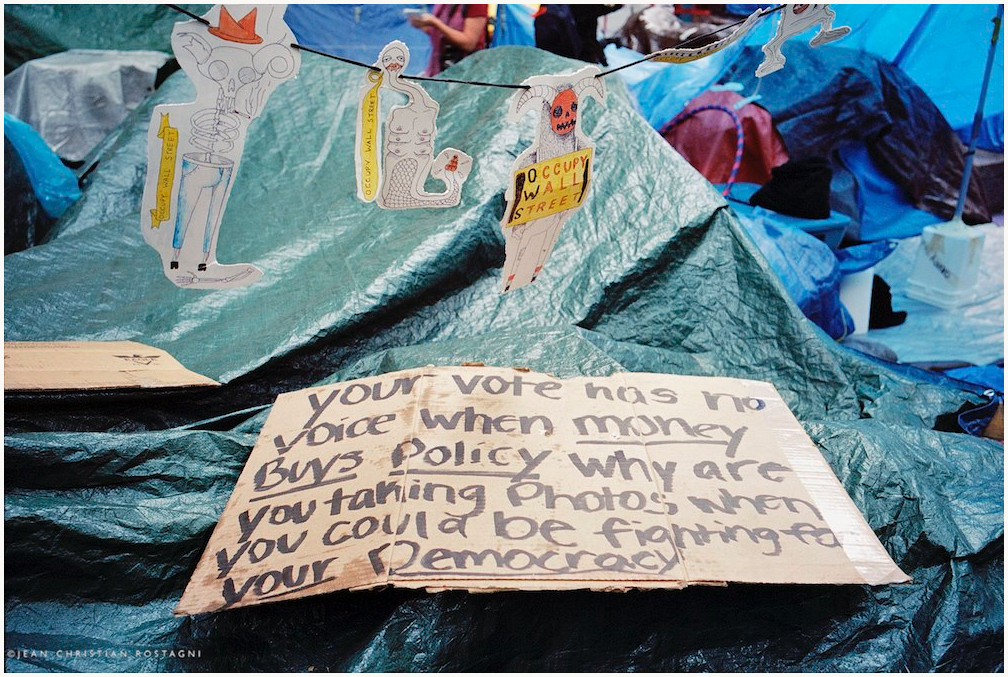 OCCUPY WALL STREET
OCCUPY WALL STREET
OCCUPY
WALL
STREET
your vote has no
voice when money
Buys Policy why are
you taking Photos when
you could be fighting fo
your Democracy
©JEAN CHRISTIAN ROSTAGNI